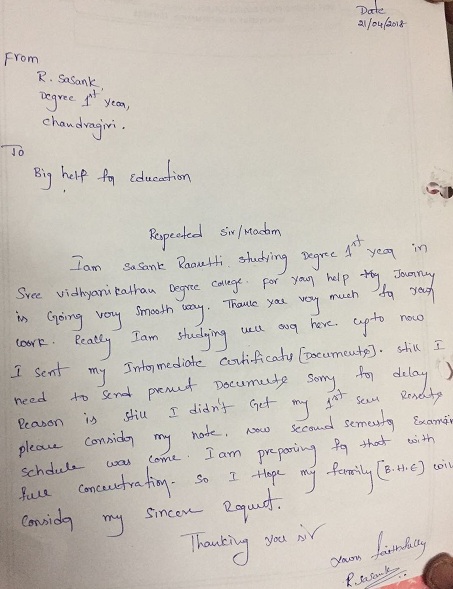 Date
21/04/2018
From
R. Sasank,
Degree 1st year,
Chandragiri.
To
Big help for Education
Respected Sir/Madam
Iam Sasank Raavtti studying Degree 1st year in
Sree Vidhyanikathan Degree College. For your help my Journey
is Going very smooth way. Thank you very much for your
work. Really Iam studying well and here. upto now
I sent my Intermediate Certificate [Documents]. still I
need to send present Documents Sorry for delay
Reason is still I didn't Get my 1st sem Results
please consider my note. Now second semester Examin
schdule was come. I am preparing for that with
full concentration. So I Hope my family [B.H.E] will
Consider my Sincere Request.
Thanking you sir
yours faithfully
R.Sasank